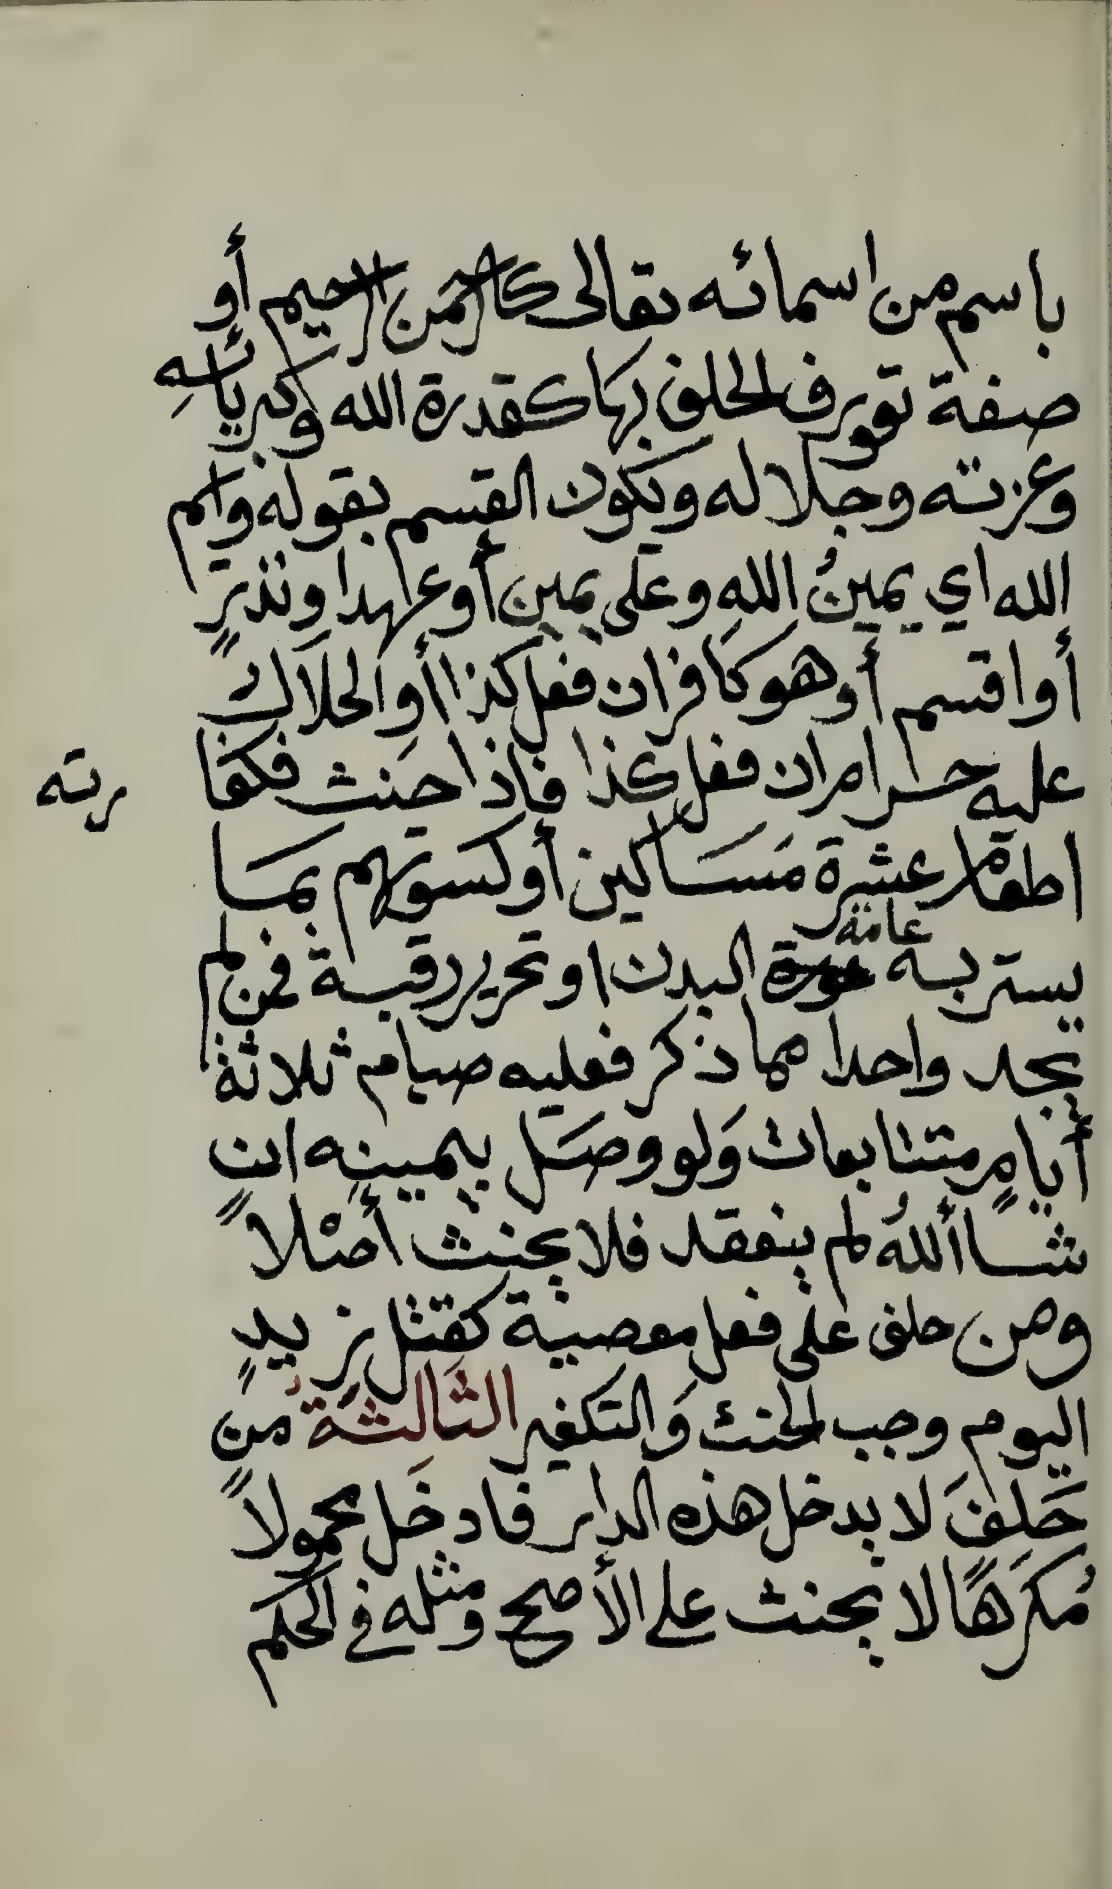 باسم من اسمائه تعالى كالرحمن الرحيم أو
صفة تعورف الحلف بها كقدرة الله وكبريائهِ
وعزته وجلاله ويكون القسم بقوله وايم
الله اي يمينُ اللهِ وعلي يمين أو عهدا ونذرٍ
أو اقسم أو هو كافر ان فعل كذا أو الحلَال
عليه حرام ان فعل كذا فاذا حنث فكفا
رته
اطعام عشرة مَسَاكين أو كسوتهم بمَا
يستر به عامة البدن او تحرير رقبة فمن لم
يجد واحدا مما ذكر فعليه صيام ثلاثة
أيامٍ متتابعات وَلو وصَل بيمينِه ان
شا أللهُ لم ينعقد فلا يحنث أصْلاً
ومن حلف على فعل معصية كقتل زيدٍ
اليوم وجب الحنث وَالتكفير الثَالثة من
حَلِفَ لا يدخل هذه الدار فادخَل محمولاً
مُكرَهًا لا يحنث على الأصح ومثله في الحكم